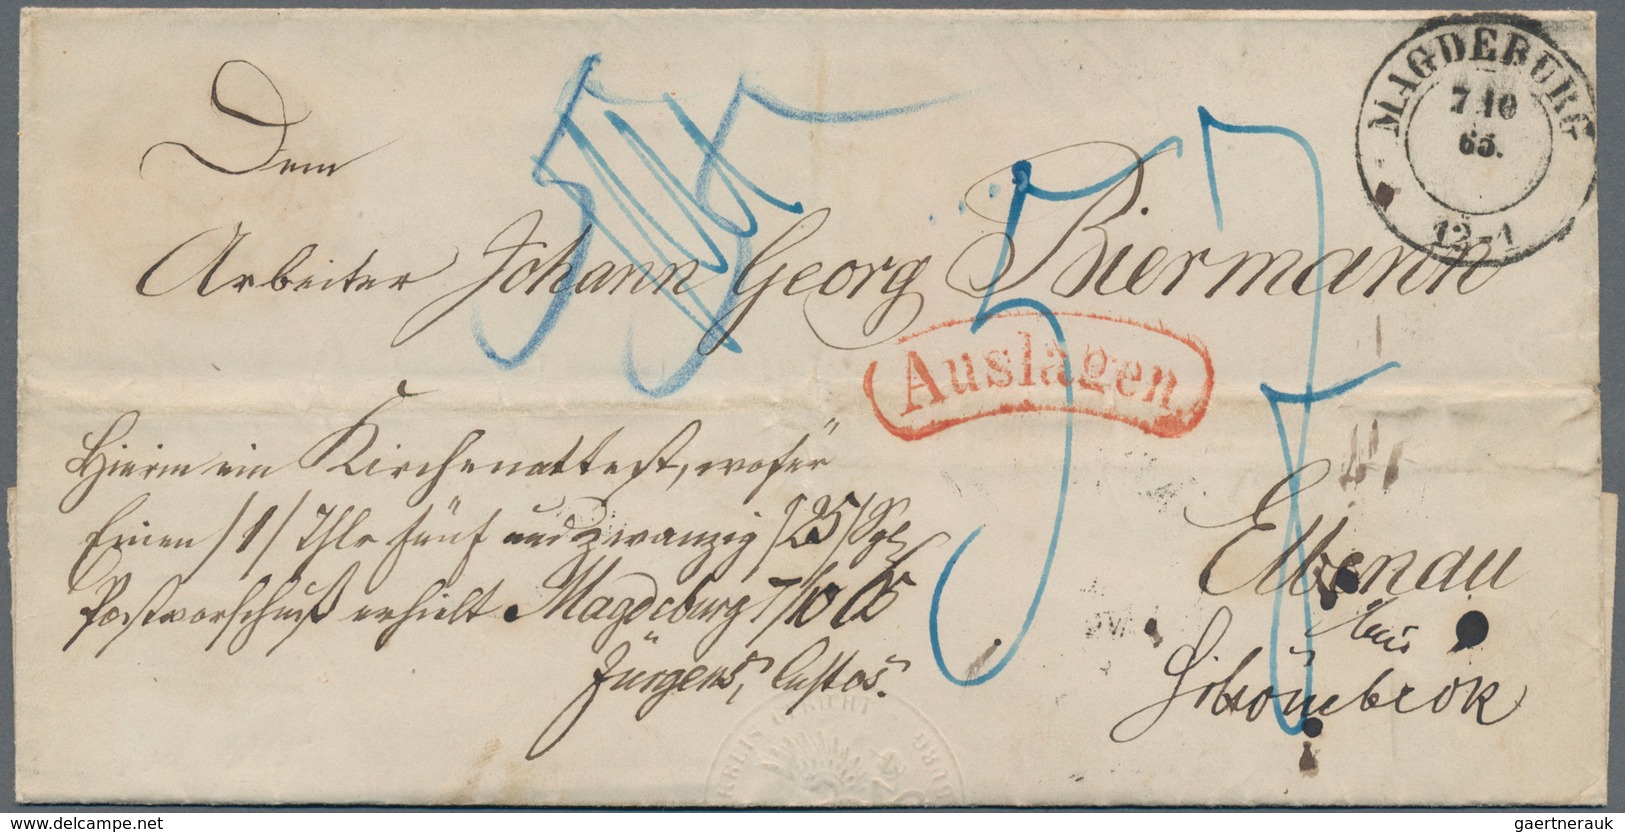 MAGDEBURG
7 10
65.
12-1
Dem
Arbeiter Johann Georg Biermann
Auslagen
57
Hierin ein Kirchenattest, wofür
Einen /1/ Thlr fünf und zwanzig /25/ Sgr
Postvorschuß erhielt Magdeburg 7/10 65
Jürgens, Custos.
Elbenau
bei
Schönebeck
KREIS GERICHT
gaertnerauk
delcampe.net